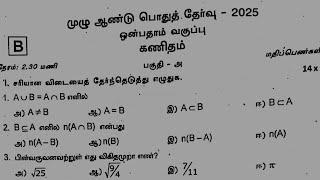 முழு ஆண்டு பொதுத் தேர்வு - 2025
ஒன்பதாம் வகுப்பு
B
கணிதம்
நேரம்: 2.30 மணி
மதிப்பெண்கள்
பகுதி - அ
1. சரியான விடையைத் தேர்ந்தெடுத்து எழுதுக. 14 x
1. A∪B = A∩B எனில்
அ) A≠B ஆ) A=B இ) A⊂B ஈ) B⊂A
2. B⊆A எனில் n(A∩B) என்பது
அ) n(A-B) ஆ) n(B) இ) n(B-A) ஈ) n(A)
3. பின்வருவனவற்றுள் எது விகிதமுறா எண்?
அ) √25 ஆ) √9/4 இ) 7/11 ஈ) π